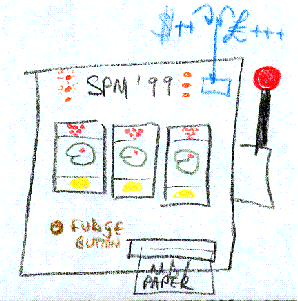 $++ £+++
SPM '99
FUDGE
BUTTON
PAPER